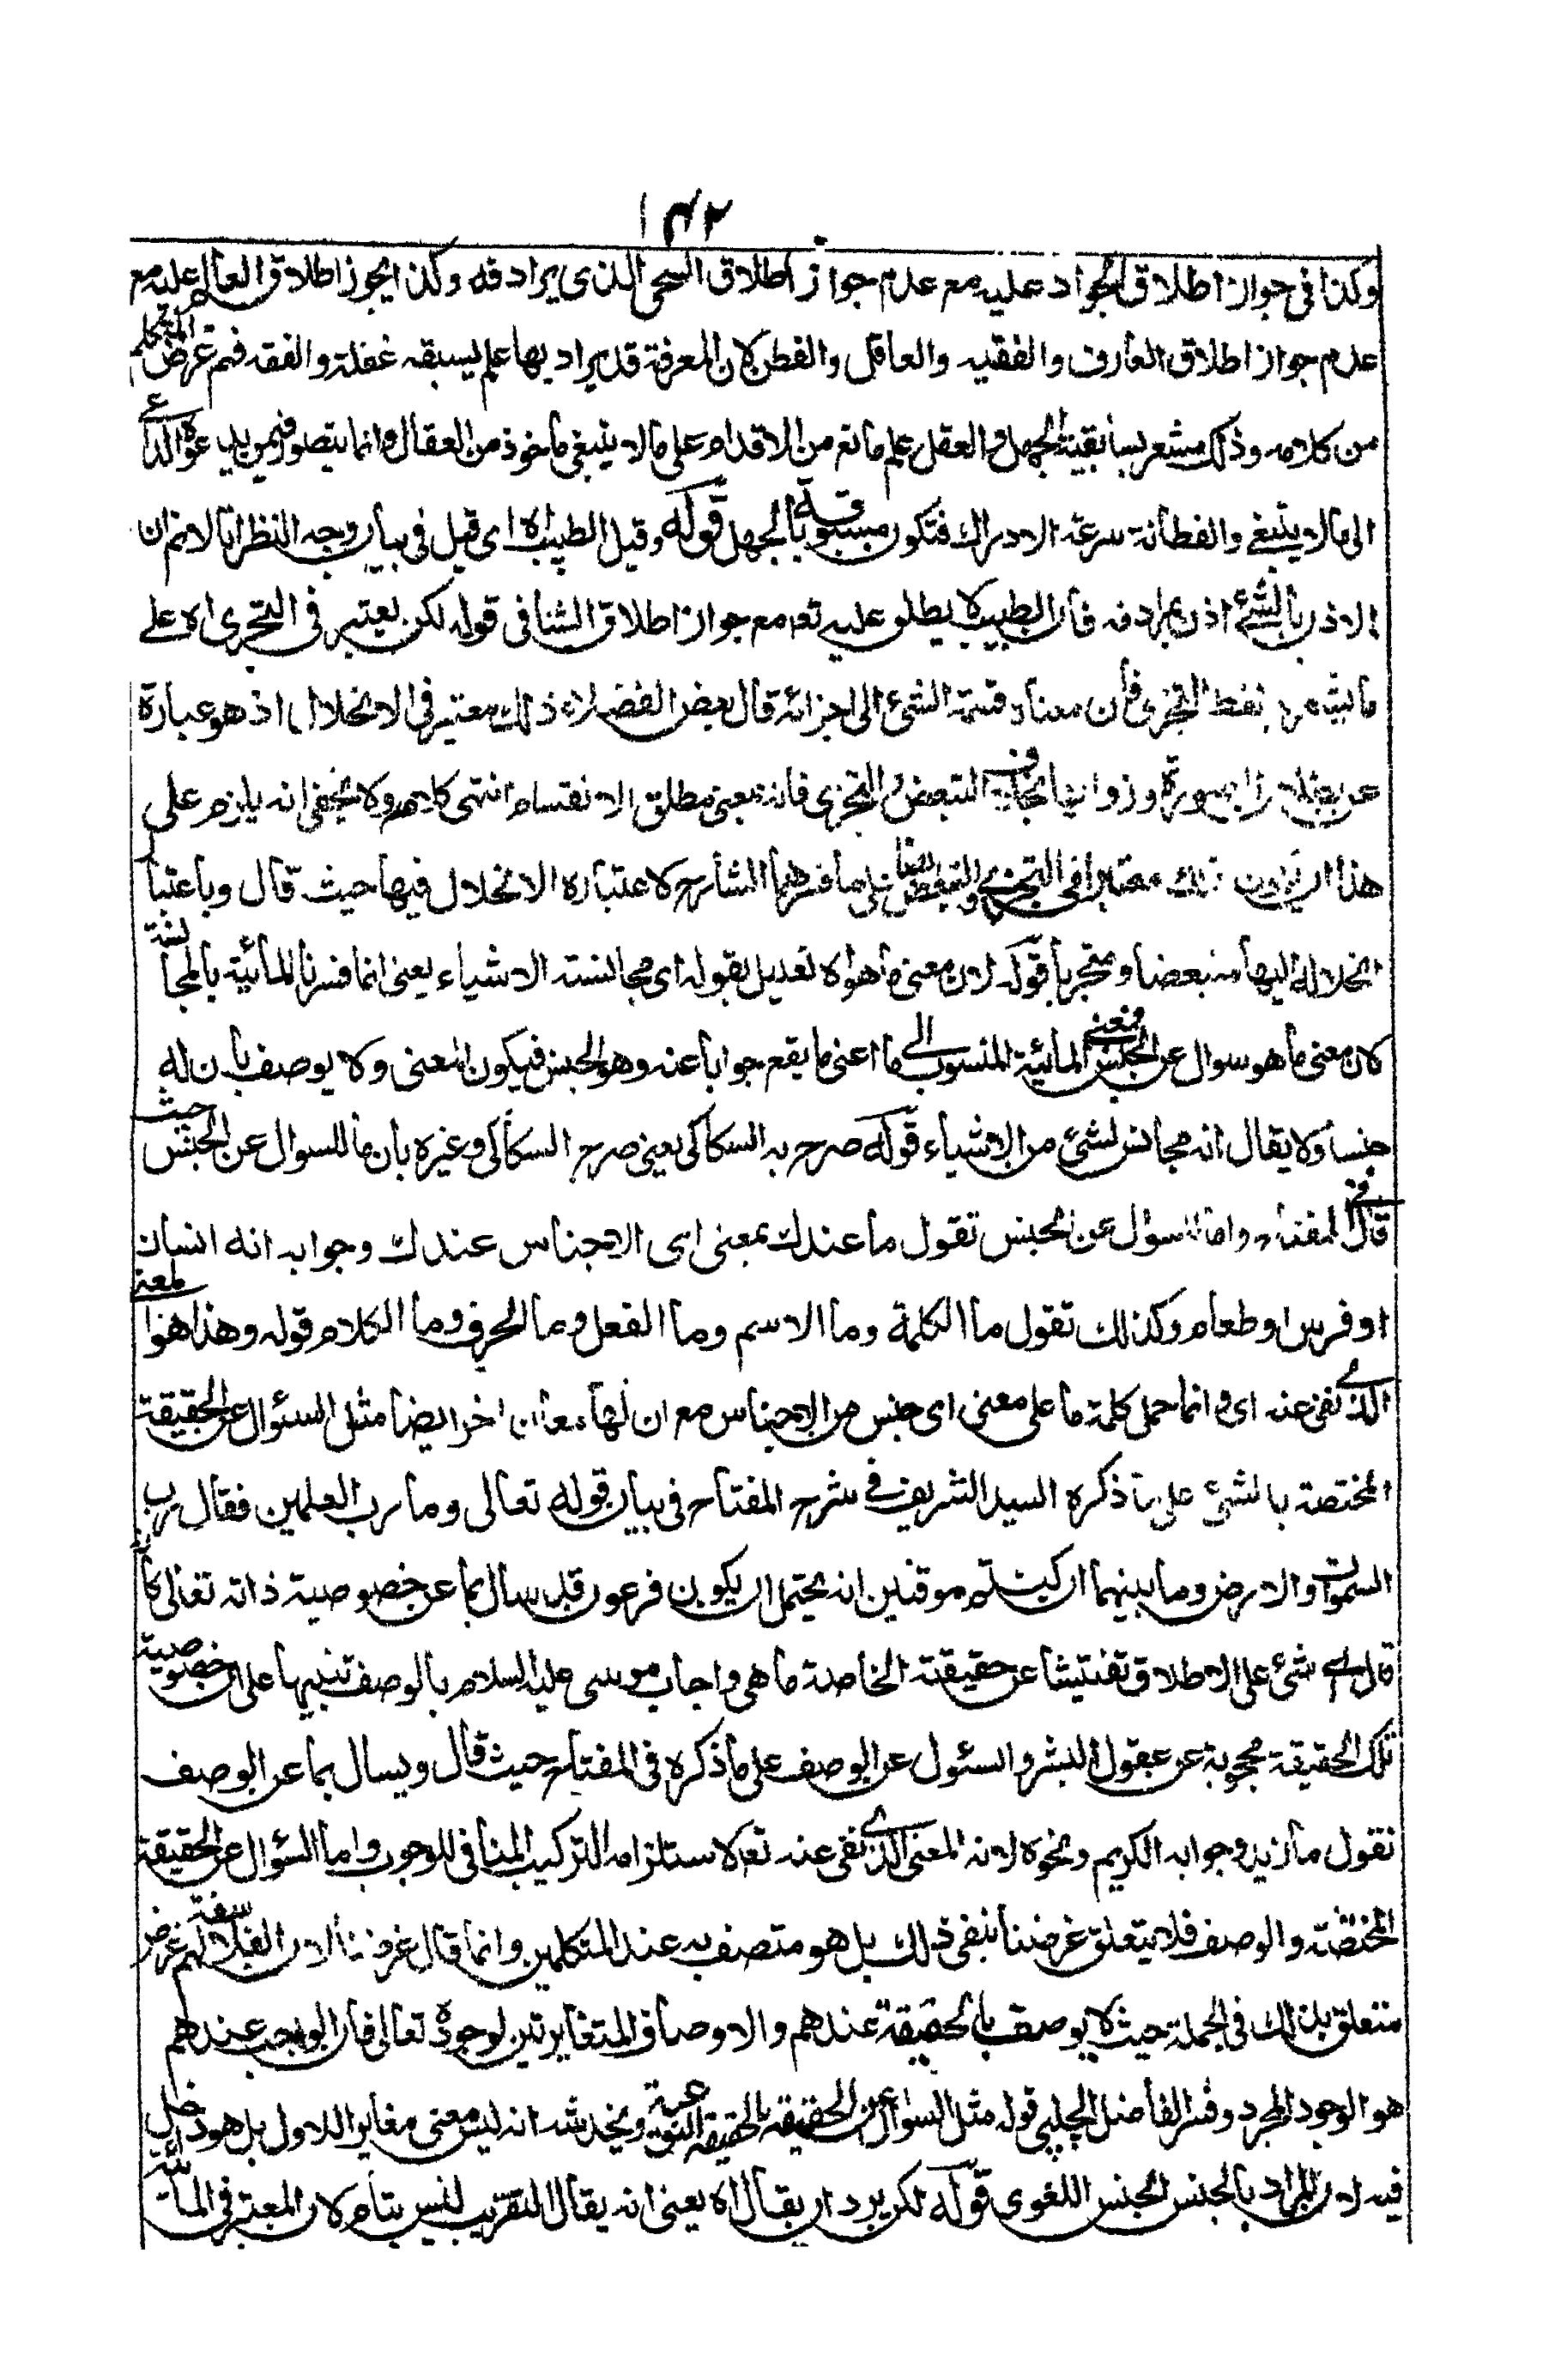 ١٤٢
وكذا فى جواز اطلاق الجواد عليه مع عدم جواز اطلاق السخى الذى يرادفه وكذا يجوز اطلاق العالم عليه مع
عدم جواز اطلاق العارف والفقيه والعاقل والفطن لان المعرفة قد يراد بها علم يسبقه غفلة والفقه فهم غرض المتكلم
من كلامه وذلك مشعر بسابقية الجهل والعقل علم مانع من الاقدام على مالا ينبغى ماخوذ من العقال وانما يتصور فيمن يدعوه الداعى
الى مالا ينبغى والفطانة سرعة الادراك فتكون مسبوقة بالجهل قوله وقيل الطبيب اه اى قيل فى بيان وجه النظر انا لانم ان
الاذن بالشئ اذن بمرادفه فان الطبيب لا يطلق عليه تعه مع جواز اطلاق الشافى قوله لكن يعتبر فى التجزى اه على
ما ينبئ عن لفظ التجزى فان معناه قسمة الشئ الى اجزائه قال بعض الفضلاء ذلك معتبر فى الانحلال اذ هو عبارة
عن بطلان صورة وزوانها بخلاف التبعض والتجزى فانه بمعنى مطلق الانقسام انتهى كلامه ولا يخفى انه يلزم على
هذا ان يكون ذلك معتبرا فى التجزى والتبعض ايضا على ما فسرهما الشارح لاعتباره الانحلال فيهما حيث قال وباعتبار
انحلاله اليها متبعضا ومتجزيا قوله لان معنى ما هو اه تعديل بقوله اى مجانسته الاشياء يعنى انما فسرنا المائية بالمجانسة
لان معنى ما هو سوال عن الجنس فمعنى المائية المنسوب الى ما اعنى ما يقع جوابا عنه وهو الجنس فيكون المعنى ولا يوصف بان له
جنسا ولا يقال انه مجانس لشئ من الاشياء قوله صرح به السكاكى يعنى صرح السكاكى وغيره بان ما للسوال عن الجنس حيث
قال فى المفتاح واما السؤل عن الجنس تقول ما عندك بمعنى اى الاجناس عندك وجوابه انه انسان
او فرس او طعام وكذلك تقول ما الكلمة وما الاسم وما الفعل وما الحرف وما الكلام قوله وهذا هو المعنى
الذى نفى عنه اى وانما حمل كلمة ما على معنى اى جنس من الاجناس مع ان لها معان اخر ايضا مثل السئوال عن الحقيقة
المختصة بالشئ على ما ذكره السيد الشريف فى شرح المفتاح فى بيان قوله تعالى وما رب العلمين فقال رب
السموات والارض وما بينهما ان كنتم موقنين انه يحتمل ان يكون فرعون قد سال بما عن خصوصية ذاته تعالى كانه
قال اى شئ على الاطلاق تفتيشا عن حقيقته الخاصة ما هى واجاب موسى عليه السلام بالوصف تنبيها على ان خصوصية
تلك الحقيقة محجوبة عن عقول البشر والسئول عن الوصف على ما ذكره فى المفتاح حيث قال ويسال بما عن الوصف
تقول ما زيد وجوابه الكريم ونحوه لانه المعنى الذى نفى عنه تعه لاستلزامه التركيب المنافى للوجوب واما السئوال عن الحقيقة
المختصة والوصف فلا يتعلق غرضنا بنفى ذلك بل هو متصف به عند المتكلمين وانما قال غرضنا لان الفلاسفة لهم غرض
متعلق بذلك فى الجملة حيث لا يوصف بالحقيقة عندهم والاوصاف المتغايرتين لوجوده تعالى فان الواجب عندهم
هو الوجود المجرد وفسر الفاضل الچلپى قوله مثل السوال عن الحقيقة بالحقيقة النوعية ويخدشه انه ليس معنى مغايرا للاول بل هو دخل
فيه لان المراد بالجنس الجنس اللغوى قوله لكن يرد ان يقال اه يعنى انه يقال التقريب ليس بتام لان المعتبر فى المائية